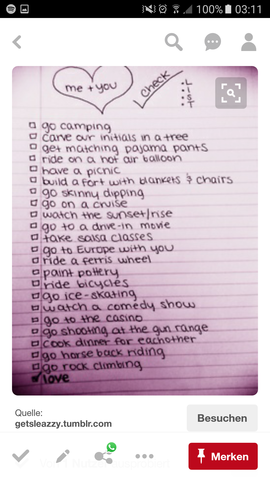 100% 03:11
me + you
check
LIST
go camping
carve our initials in a tree
get matching pajama pants
ride on a hot air balloon
have a picnic
build a fort with blankets & chairs
go skinny dipping
go on a cruise
watch the sunset/rise
go to a drive-in movie
take salsa classes
go to Europe with you
ride a ferris wheel
paint pottery
ride bicycles
go ice-skating
watch a comedy show
go to the casino
go shooting at the gun range
cook dinner for eachother
go horse back riding
go rock climbing
love
Quelle:
getsleazzy.tumblr.com
Besuchen
Merken